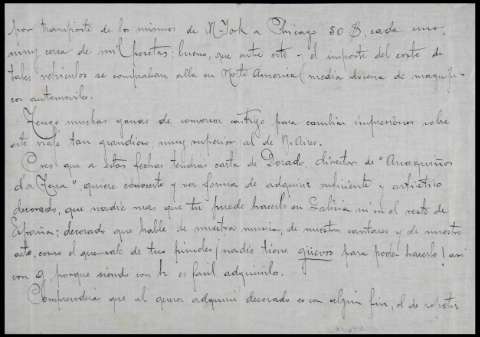 por transporte de los mismos de N-York a Chicago 50 $, cada uno,
muy cerca de mil pesetas: bueno, que ante este y el importe del coste de
tales vehículos se compraban alla en Norte America (media docena de magnifi-
cos automoviles.
Tengo muchas ganas de conversar contigo para cambiar impresiónes sobre
este viaje tan grandioso muy superior al de B. Aires.
Creo que a estas fechas tendrás carta de Dorado director de "Anaquiños
da Terra" quiere conocerte y ver forma de adquirir suficiente y artistico
decorado, que nadie mas que tu puede hacerlo en Galicia ni en el resto de
España; decorado que hable de nuestra musica, de nuestros cantares y de nuestro
arte, como el que sale de tus pinceles (nadie tiene güevos para poder hacerlo! asi
con g, porque siendo con h es facil adquirirlo.
Comprenderás que al querer adquirir decorado es con algun fin, el de